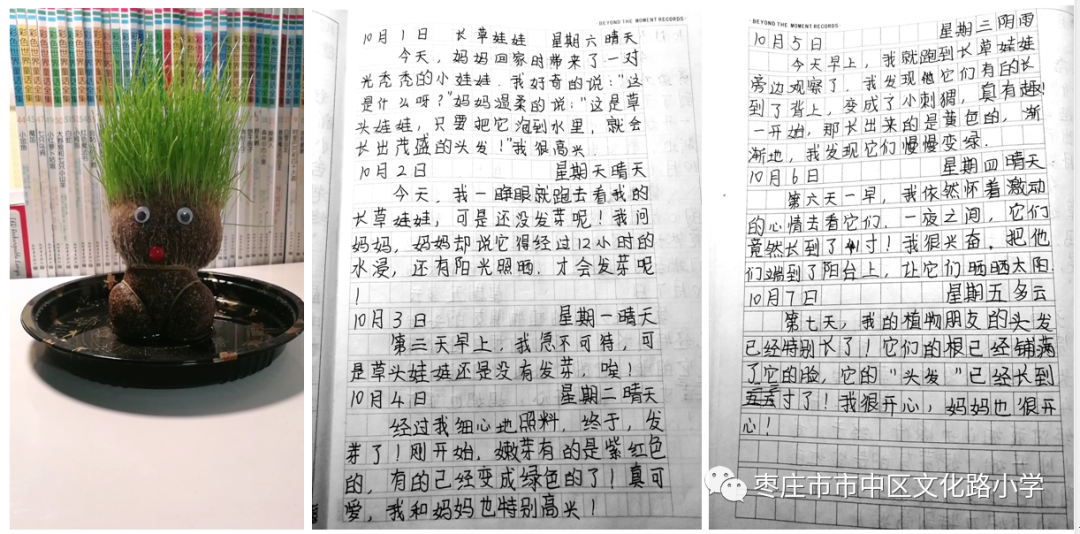 彩色世界童话全集
BEYOND THE MOMENT RECORDS
10月1日 长草娃娃 星期六 晴天
今天，妈妈回家时带来了一对
光秃秃的小娃娃.我好奇的说："这
是什么呀？"妈妈温柔的说："这是草
头娃娃，只要把它泡到水里，就会
长出茂盛的头发！"我很高兴.
10月2日 星期天 晴天
今天，我一睁眼就跑去看我的
长草娃娃，可是还没发芽呢！我问
妈妈，妈妈却说它得经过12小时的
水浸，还有阳光照晒.才会发芽呢
！
10月3日 星期一 晴天
第三天早上，我急不可待，可
是草头娃娃还是没有发芽，唉！
10月4日 星期二 晴天
经过我细心地照料，终于，发
芽了！刚开始，嫩芽有的是紫红色
的，有的已经变成绿色的了！真可
爱，我和妈妈也特别高兴！
BEYOND THE MOMENT RECORDS
10月5日 星期三 阴雨
今天早上，我就跑到长草娃娃
旁边观察了.我发现他它们有的长
到了背上，变成了小刺猬，真有趣！
一开始，那长出来的是黄色的，渐
渐地，我发现它们慢慢变绿.
10月6日 星期四 晴天
第六天一早，我依然怀着激动
的心情去看它们.一夜之间，它们
竟然长到了 寸！我很兴奋，把他
们端到了阳台上，让它们晒晒太阳.
10月7日 星期五 多云
第七天，我的植物朋友的头发
已经特别长了！它们的根已经铺满
了它的脸，它的"头发"已经长到
寸了！我很开心，妈妈也很开
心！
枣庄市市中区文化路小学